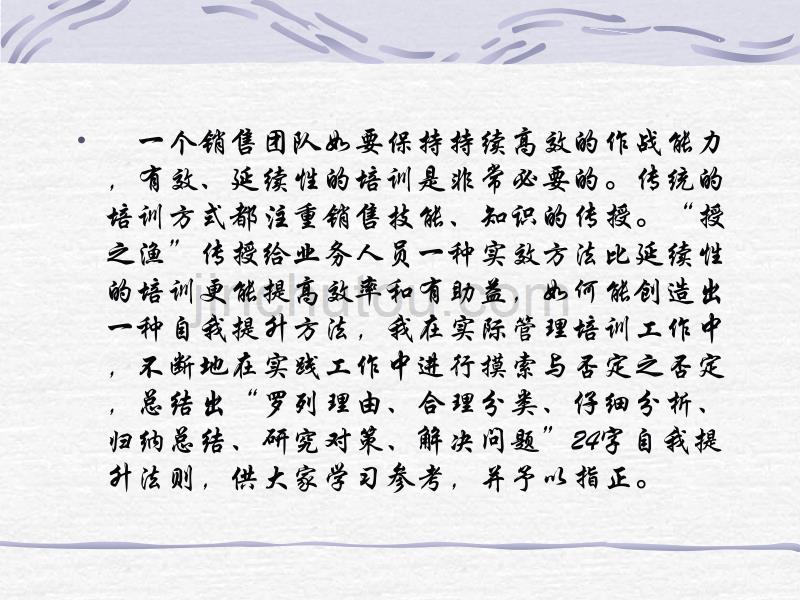 • 一个销售团队如要保持持续高效的作战能力
，有效、延续性的培训是非常必要的。传统的
培训方式都注重销售技能、知识的传授。“授
之渔”传授给业务人员一种实效方法比延续性
的培训更能提高效率和有助益，如何能创造出
一种自我提升方法，我在实际管理培训工作中
，不断地在实践工作中进行摸索与否定之否定
，总结出“罗列理由、合理分类、仔细分析、
归纳总结、研究对策、解决问题”24字自我提
升法则，供大家学习参考，并予以指正。
jinchutou.com